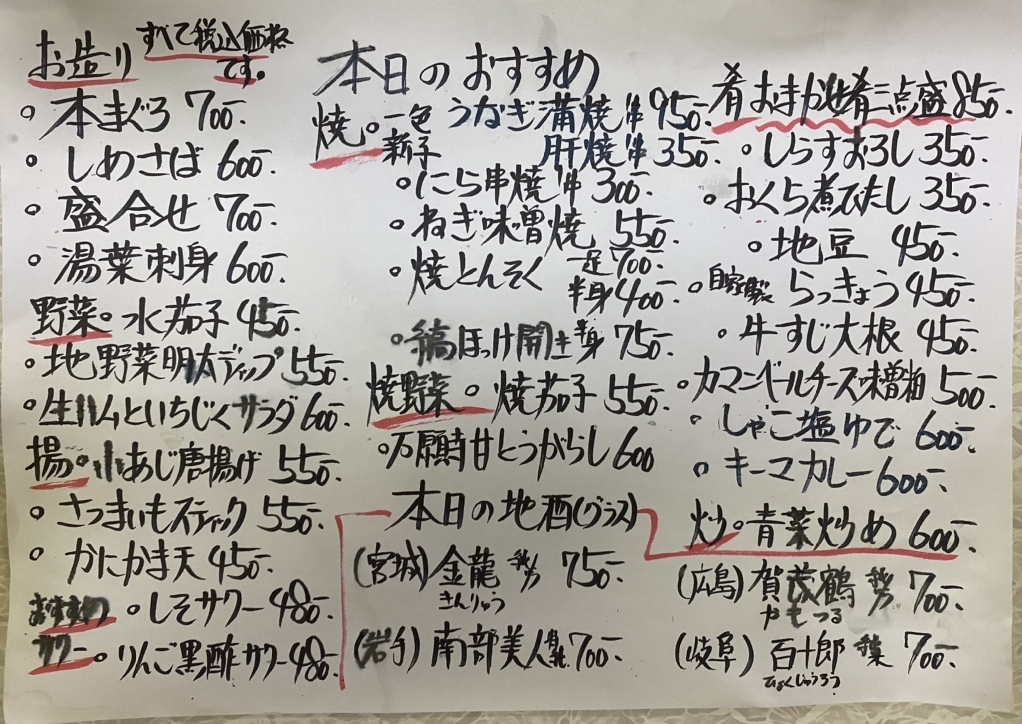 お造り すべて税込価格
です。
。本まぐろ 700-
。しめさば 600-
。盛合せ 700-
。湯葉刺身 600-
野菜。水茄子 450-
・地野菜明太ディップ 550-
・生ハムといちじくサラダ 600-
揚。小あじ唐揚げ 550-
。さつまいもスティック 550-
。かにかま天 450-
おすすめ 。しそサワー 480-
サワー 。りんご黒酢サワー 480-
本日のおすすめ
焼。一色 うなぎ蒲焼串 950-
新子 肝焼串 350-
。にら串焼 300-
。ねぎ味噌焼 550-
。焼とんそく 一足 700-
半身 400-
。縞ほっけ開き 半身 750-
焼野菜。焼茄子 550-
。万願寺甘とうがらし 600
肴 おまかせ肴三点盛 850-
。しらすおろし 350-
。おくら煮びたし 350-
。地豆 450-
。自家製 らっきょう 450-
。牛すじ大根 450-
・カマンベールチーズ味噌粕 500-
。しゃこ塩ゆで 600-
。キーマカレー 600-
炒。青菜炒め 600-
本日の地酒(グラス)
(宮城) 金龍 750-
きんりゅう
(岩手) 南部美人 700-
(広島) 賀茂鶴 700-
かもつる
(岐阜) 百十郎 700-
ひゃくじゅうろう